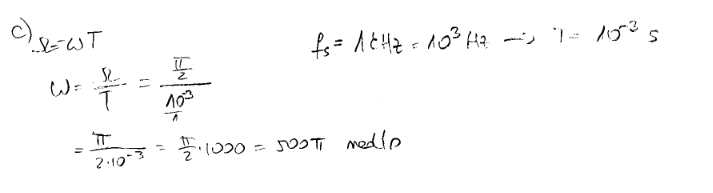 c) Ω=ωT
fs = 1kHz = 10³ Hz → T = 10⁻³ s
ω = Ω/T = (π/2)/(10⁻³/1)
= π/(2·10⁻³) = π/2 · 1000 = 500π